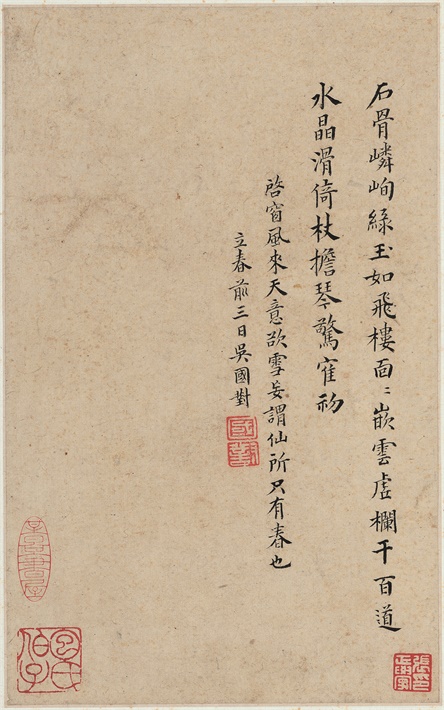 石骨嶙峋綠玉如飛樓面〻嵌雲虛欄干百道
水晶滑倚杖擔琴驚寉礽
啓窗風來天意欲雪妄謂仙所只有春也
立春前三日吳國對
國對